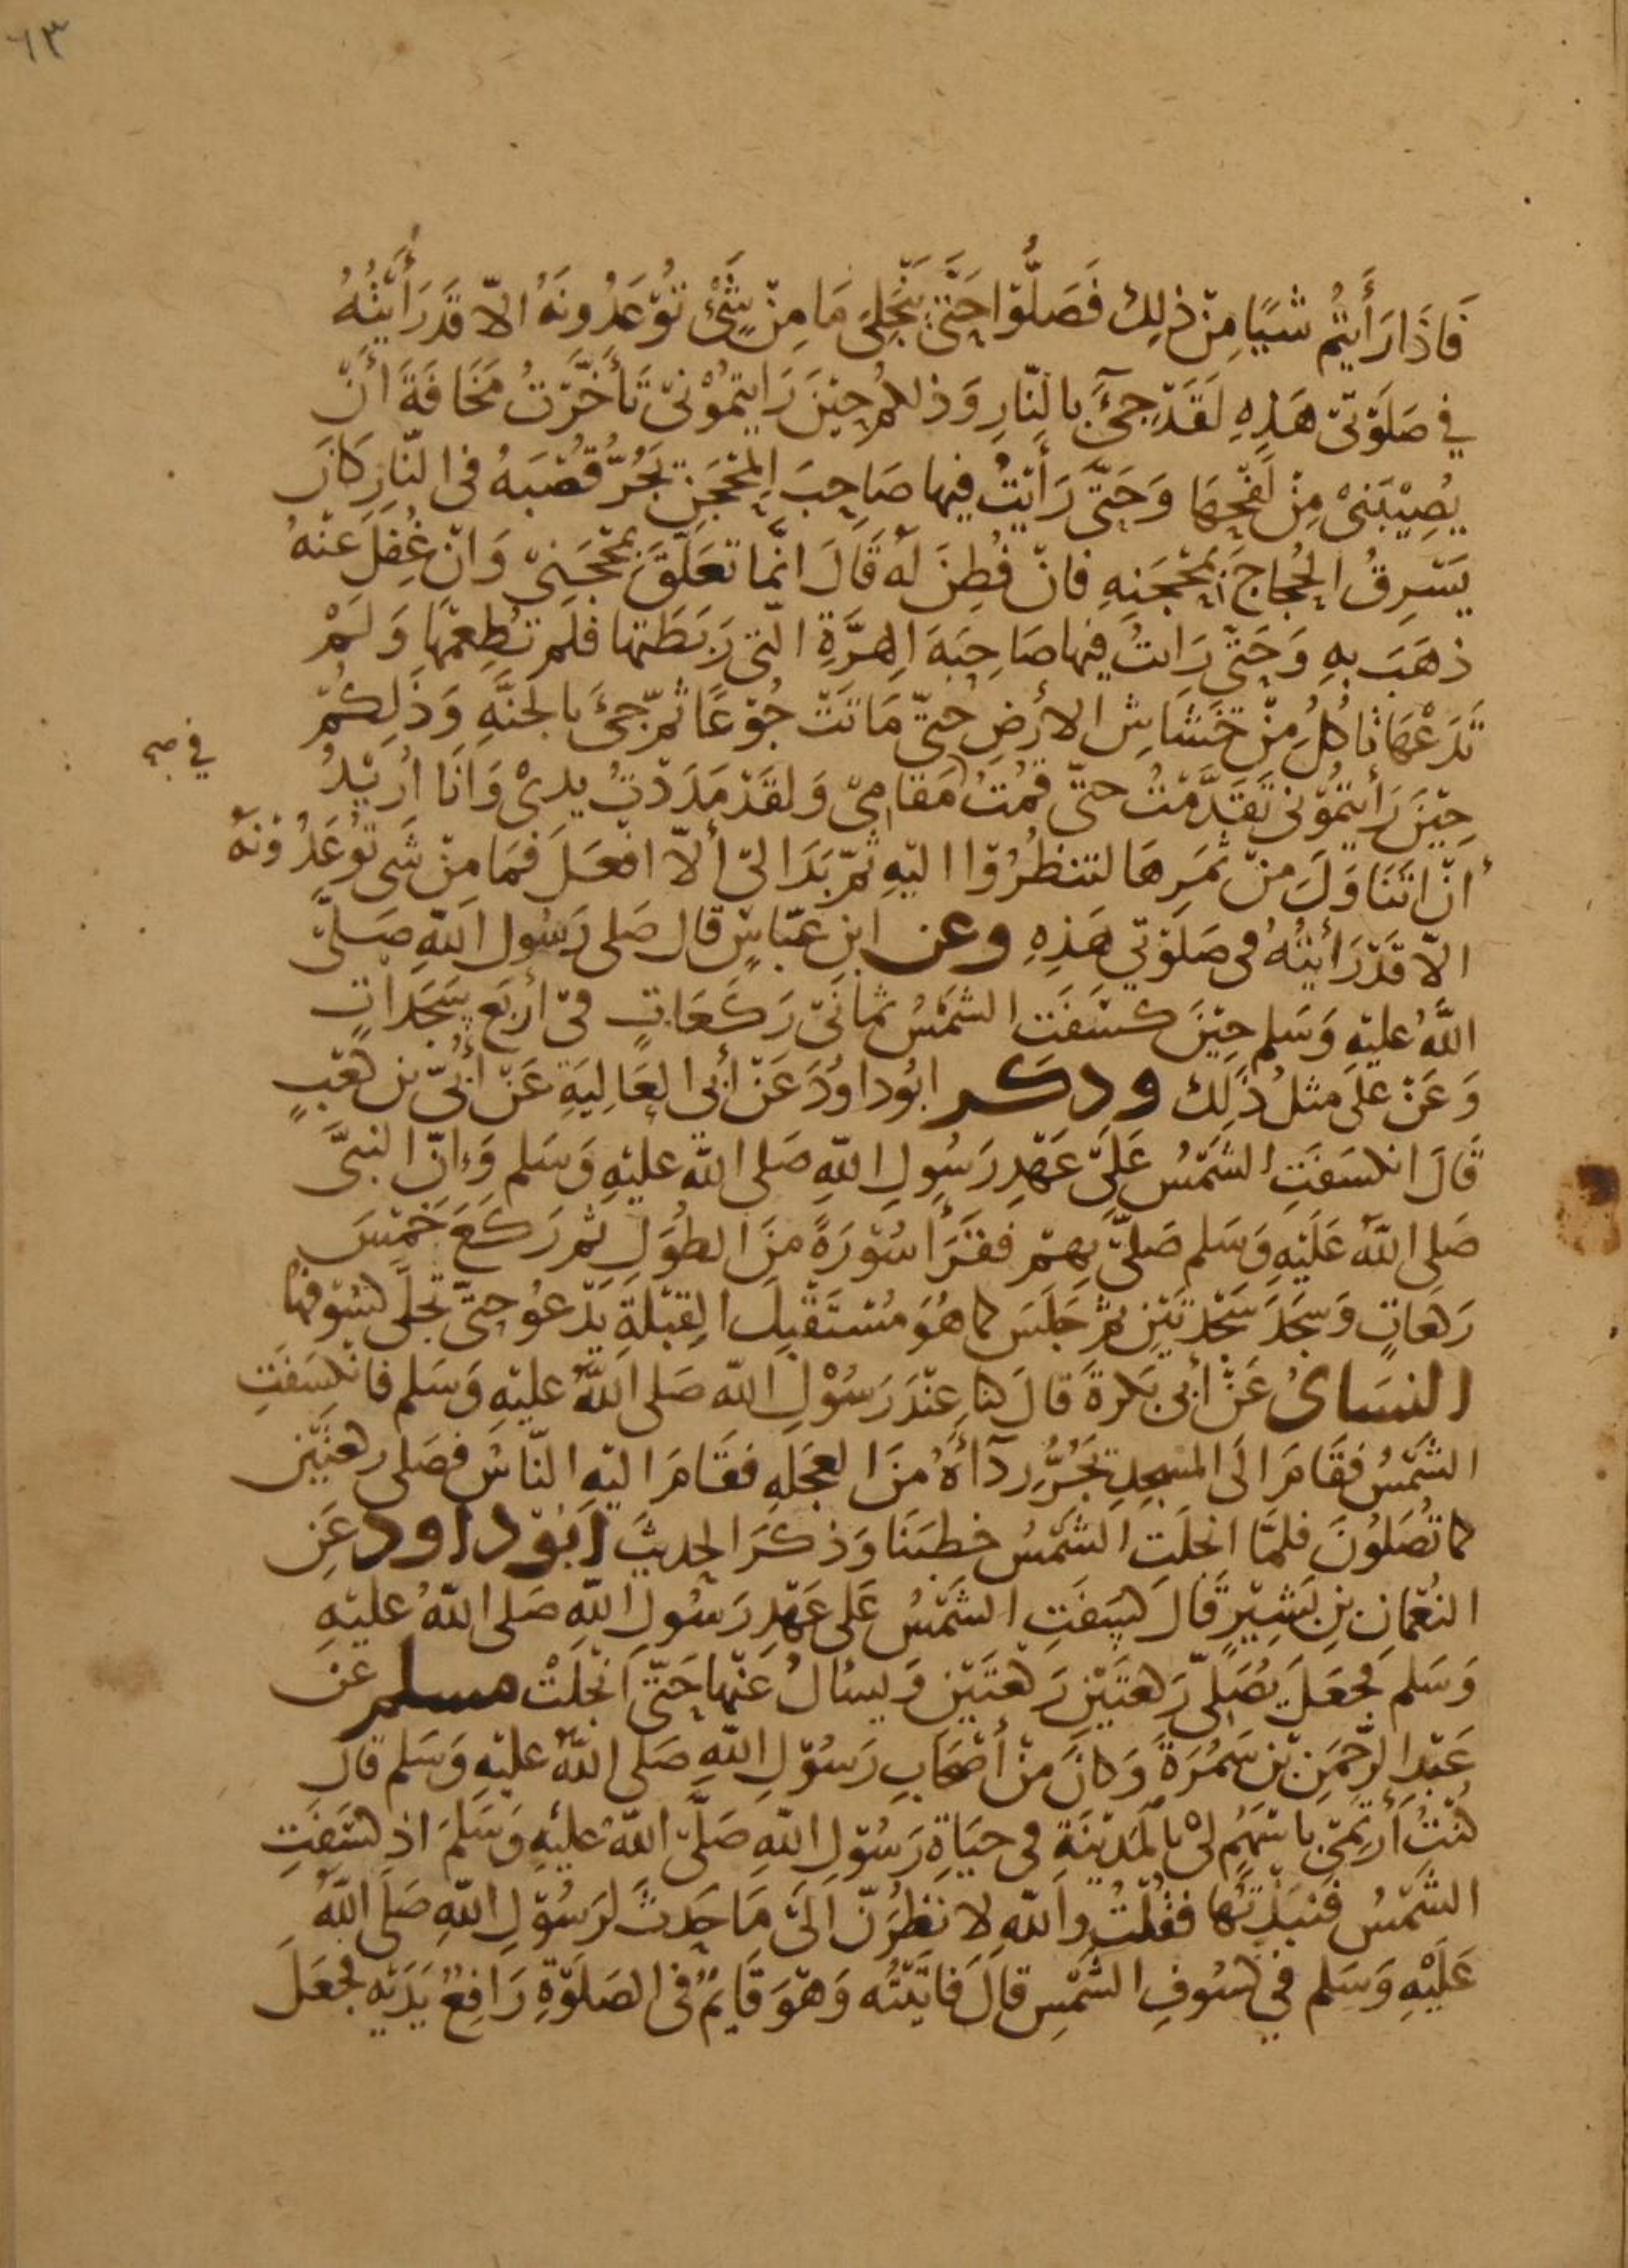 ٦٣
فَاذَا رَأَيتُم شَيًا مِنْ ذلِك فَصَلُّوْا حَتَّى يَنْجَلِىَ مَا مِنْ شَىْ تُوْعَدُونَهُ الّا قَدرَأَيْتُهُ
في صَلَوتىْ هَذِهِ لَقَدْ جىَٔ بالنّارِ وَذلكم حِيْنَ رَايتمُوْنىْ تَأَخَّرْتُ مَخَافَةَ أنْ
يُصِيْبَنىْ مِنْ لَفْحِهَا وَحَتّى رَأيْتُ فيها صَاحِبَ المِحْجَنِ يَجُرُّ قُصْبَهُ فى النّارِ كَانَ
يَسْرِقُ الحُجاجَ بِمحْجَنِهِ فانْ فُطِنَ لَهُ قَالَ انّما تَعَلَّقَ بمحْجَنِىْ وَانْ غُفِلَ عَنْهُ
ذهَبَ بهِ وَحَتّى رَايتُ فيها صَاحِبَةَ الهِرَّةِ التى رَبَطَتها فلَم تُطِعمْهَا وَلَمْ
تَدَعْهَا تاكُلُ مِنْ خَشَاشِ الارْضِ حتىّ مَاتَتْ جُوْعًا ثمّ جىَٔ بالجنَّهِ وَذَلِكُمْ
في صح
حِيْنَ رَأيتمُوْنى تَقَدَّمْتُ حتىّ قُمْتُ مَقَامِىْ وَلقَدْ مَدَدْتُ يدىْ وَانَا أُرِيْدُ
انْ اتَنَاوَلَ مِنْ ثمَرِهَا لتنظُرُوْا اليْهِ ثمّ بَدَا لىْ ألاّ افعَلَ فَمَا مِنْ شَى تُوعَدُوْنَهُ
الاّ قَدْ رَايْتُهُ فى صَلَوتي هَذِهِ وعن ابنِ عبّاسٍ قال صَلى رَسُول اللهِ صَلىَّ
اللهُ عليْهِ وَسَلم حِيْنَ كسَفَت الشَمْسُ ثمانَىْ رَكَعَاتٍ فىْ أربَعِ سَجَداتٍ
وَعَنْ على مثلُ ذَلِك وذكر ابُوداوُدَ عَنْ أَبي العَالِيَةِ عَنْ أُبَىّ بن كعْبٍ
قَالَ انكسَفَتِ الشمْسُ عَلىَ عَهْدِ رَسُولِ اللهِ صَلى الله عليْهِ وَسَلم وَاِنّ النبىَّ
صَلى اللهُ عَلَيْهِ وَسَلم صَلىّ بِهِمْ فقَرَأ سُوْرَةً مِنَ الطوَلِ ثم رَكَعَ خَمْسَ
رَكعَاتٍ وَسَجَدَ سَجْدتَيْنِ ثمّ جَلَسَ كما هُوَ مُسْتَقْبِلَ القِبْلَةِ يَدْعُو حَتىّ تجلّى كسُوْفها
النسَاىُٔ عَنْ أبى بَكرةَ قالَ كنا عِنْدَ رَسُوْلِ الله صَلى اللهُ عليْهِ وَسَلم فانكسَفَتِ
الشَّمْسُ فقَامَ الَى المَسْجِدِ يَجُرُّ رِدَآءَهُ مِنَ العجَلهِ فقَامَ اليْهِ النّاسُ فصَلى ركعتيْنِ
كما تُصَلُوْنَ فلمّا انجلَتِ الشَمْسُ خطبَنَا وَذكَرَ الحديثَ ابُوْداود عَنِ
النعْمَانِ بْنِ بَشِيْرٍ قَالَ كسِفَتِ الشَمْسُ عَلى عَهْدِ رَسُولِ اللهِ صَلى اللهُ عليْهِ
وَسَلم فجعَلَ يُصَلىّ رَكعتَيْنِ رَكعتَيْنِ وَيسْالُ عَنْها حَتىّ انجلَتْ مسلم عَنْ
عَبْدِ الرّحمَنِ بْنِ سَمُرَةَ وَكانَ مِنْ أصْحَابِ رَسُوْلِ اللهِ صَلى اللهُ عليْهِ وَسَلم قالَ
كُنْتُ أرتمَىْ باسْهُمٍ لىْ بالمَديْنَةِ فى حيَاةِ رَسُوْلِ اللهِ صَلىَّ اللهُ عليْهِ وَسَلمَ اذ كسَفَتِ
الشمْسُ فنبَذْتها فقُلْتُ واللهِ لانظُرَنّ الىَ مَا حَدثَ لرَسُوْلِ اللهِ صَلى اللهُ
عَلَيْهِ وَسَلم في كسُوفِ الشمْسِ قالَ فاتَيْتُه وَهْوَ قَايمٌ فى الصَلَوةِ رَافِعٌ يَدَيْهِ فجعَلَ